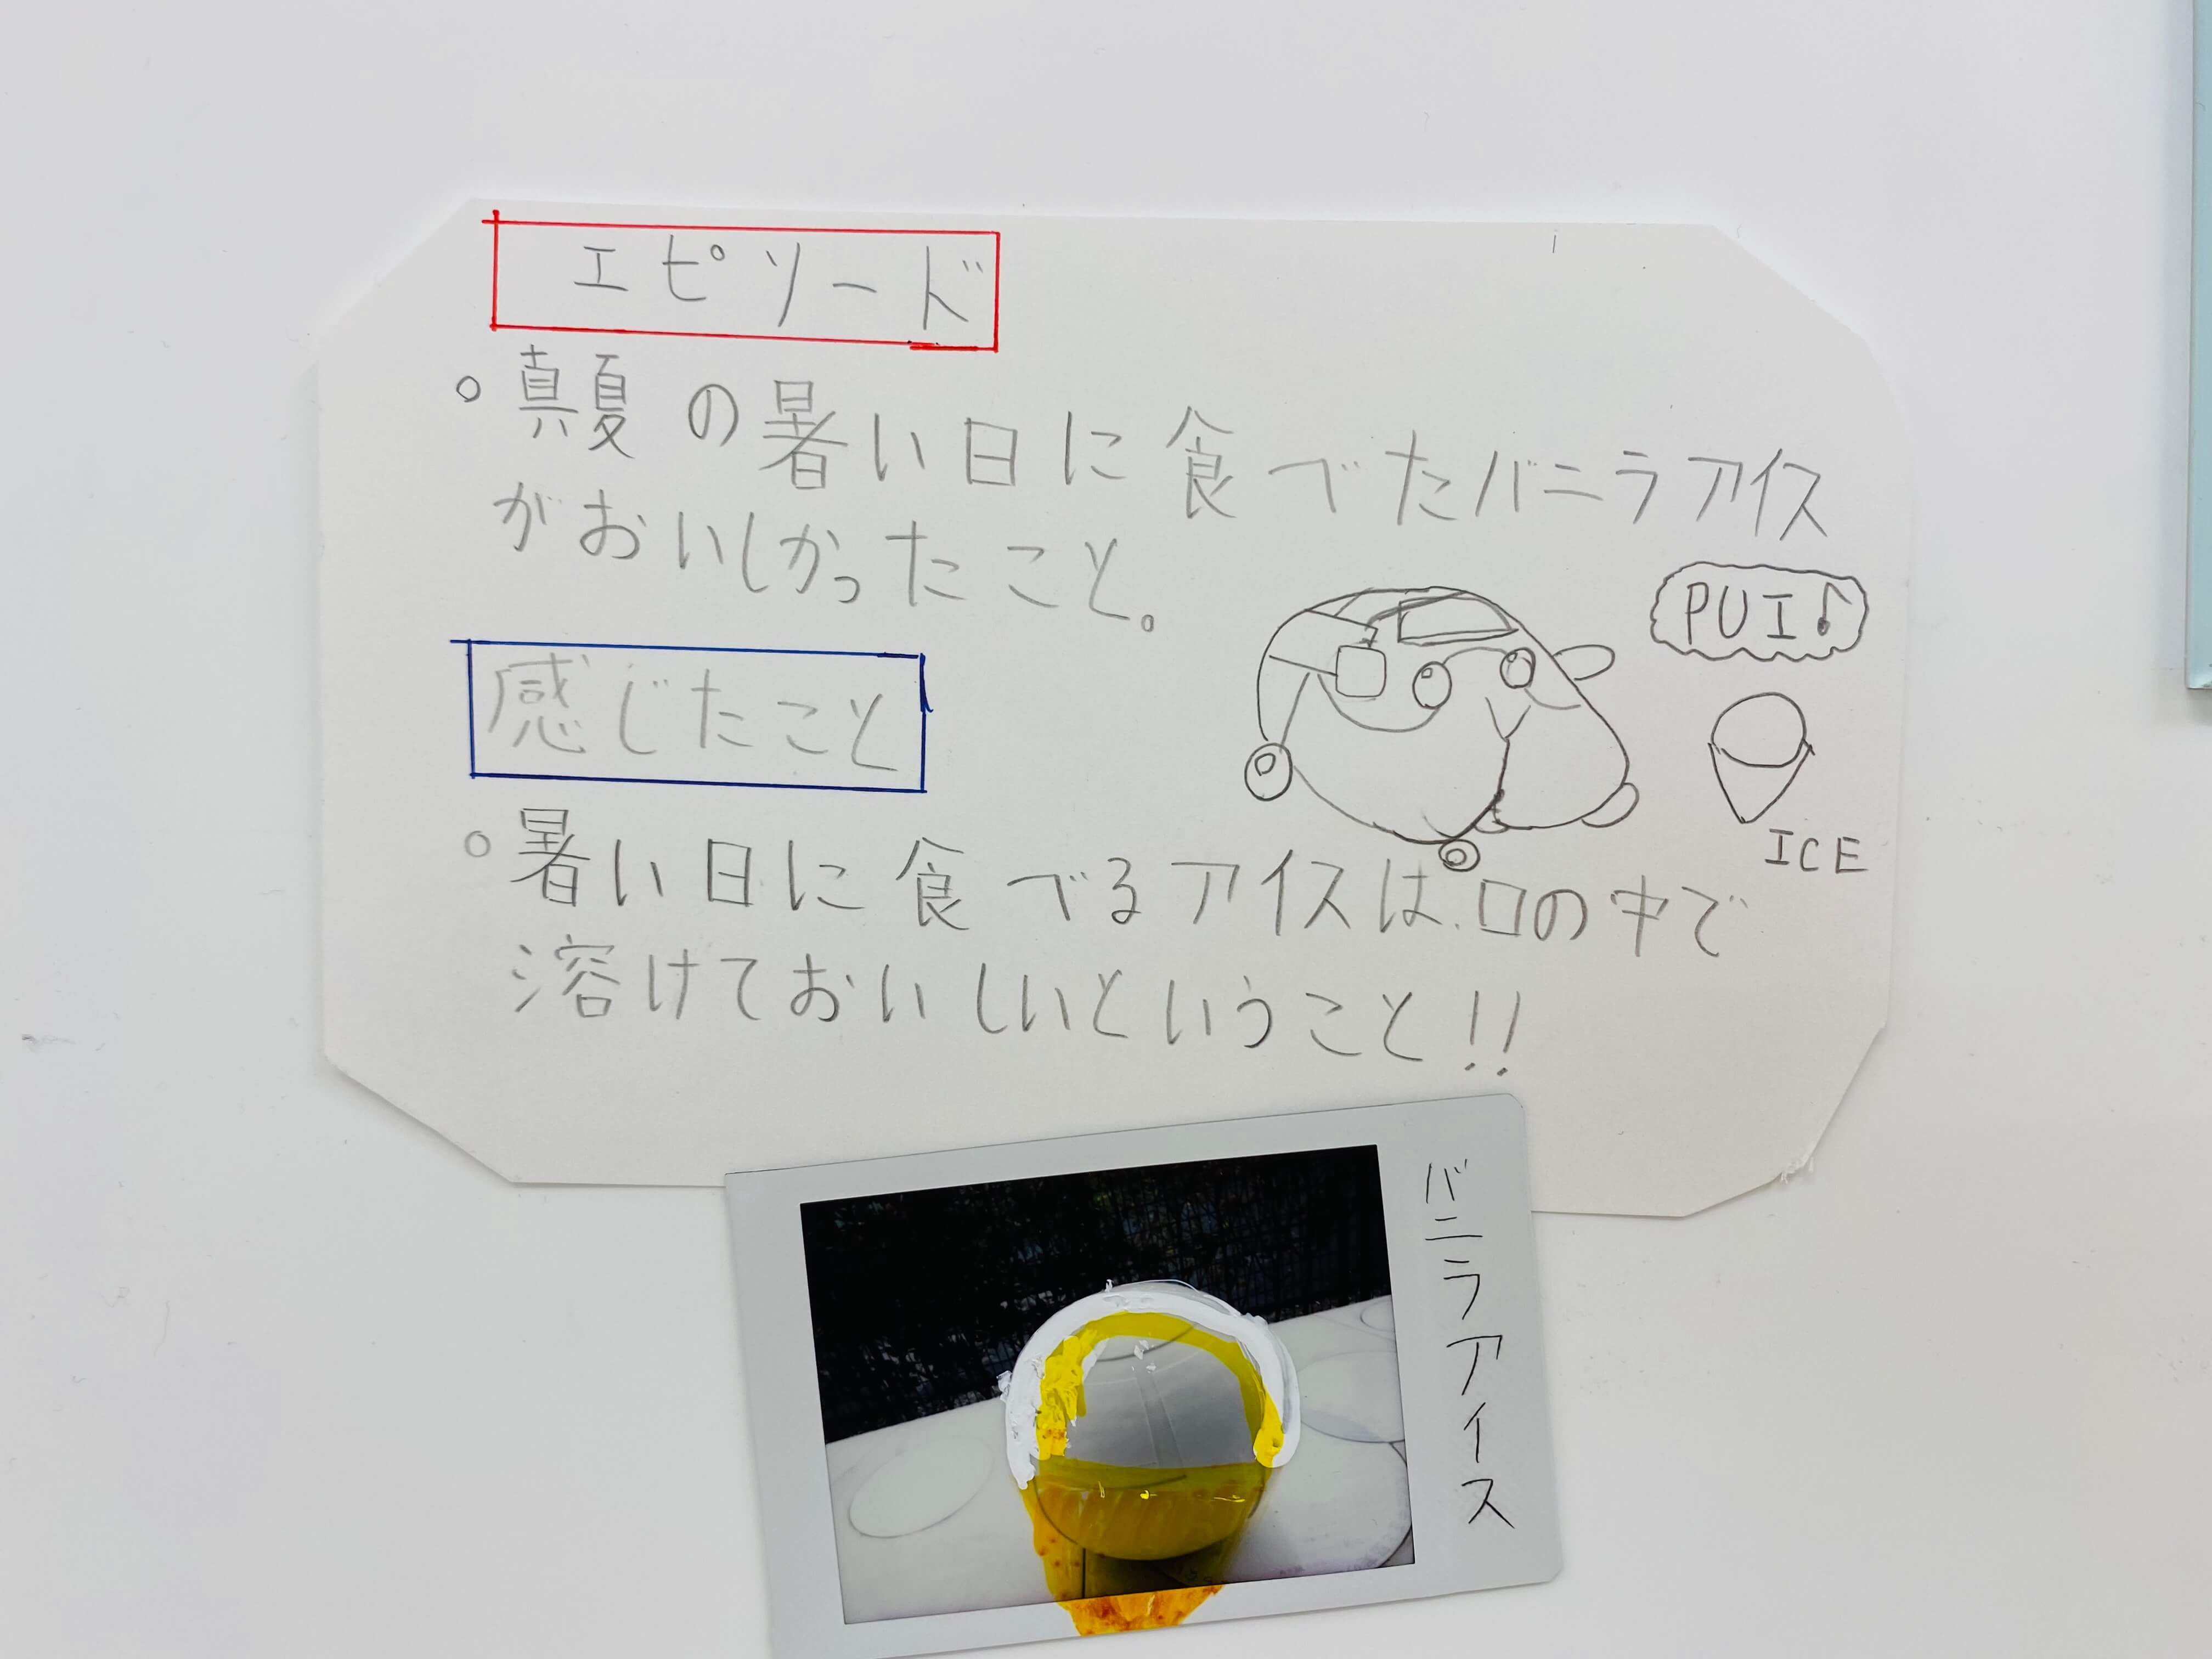 エピソード
。真夏の暑い日に食べたバニラアイス
がおいしかったこと。
PUI♪
感じたこと
ICE
。暑い日に食べるアイスは口の中で
溶けておいしいということ!!
バニラアイス